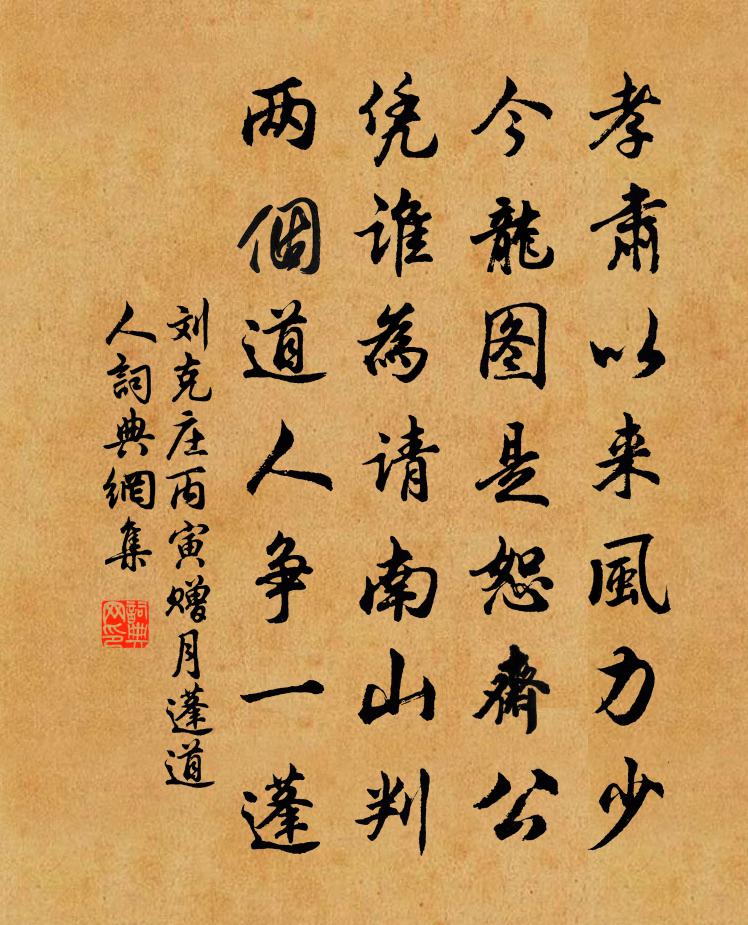 孝肅以来風力少
今龍图是恕齋公
凭谁為请南山判
两個道人争一蓬
刘克庄丙寅赠月蓬道
人詞典網集
詞典网印